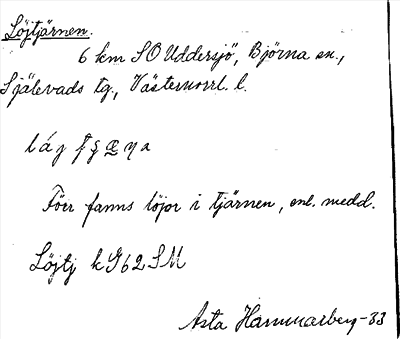 Löjtjärnen.
6 km SO Uddersjö, Björna sn.,
Själevads tg., Västernorrl. l.
Förr fanns löjor i tjärnen, enl. medd.
Löjtj kG62SM
Asta Hammarberg-33